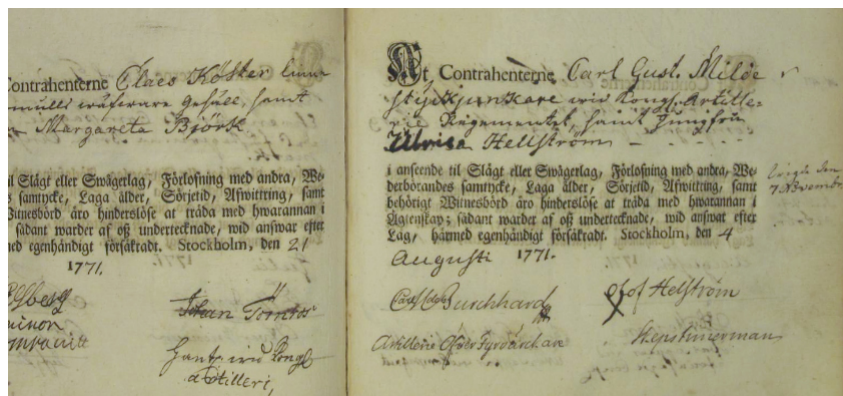 Contrahenterne Claes Köster
samt
Margareta Björk
til Slägt eller Swågerlag, Förlofning med andra, We-
samtycke, Laga ålder, Sörjetid, Afwittring, samt
Witnesbörd åro hinderslöse at tråda med hwarannan i
sådant warder af oß undertecknade, wid answar efter
med egenhändigt försäkradt. Stockholm, den 21
1771.
Johan
Kongl
Artilleri,
At Contrahenterne Carl Gust. Milde
Styckjunkare wid Kongl. Artille-
rie Regementet, samt Jungfru
Ulrica Hellström
i anseende til Slägt eller Swågerlag, Förlofning med andra, We-
derbörandes samtycke, Laga ålder, Sörjetid, Afwittring, samt
behörigt Witnesbörd åro hinderslöse at tråda med hwarannan i
Ägtenskap; sådant warder af oß undertecknade, wid answar efter
Lag, hårmed egenhändigt försäkradt. Stockholm, den 4
Augusti 1771.
den
7 November
Burchhard
Olof Hellström
Artillerie
Timerman